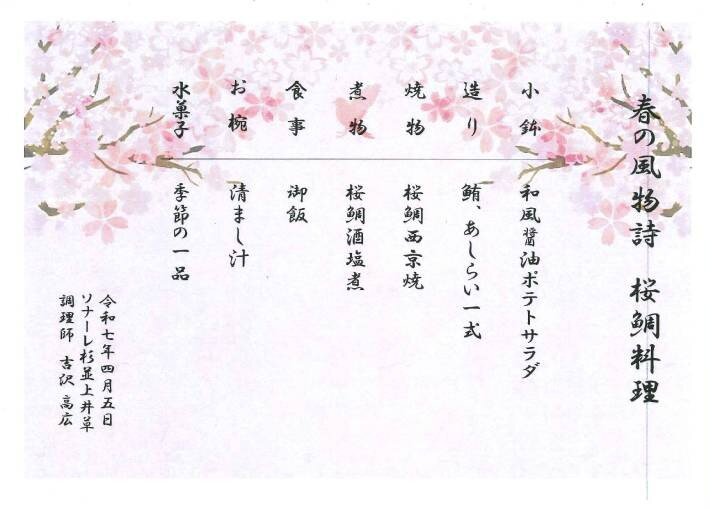 春の風物詩　桜鯛料理
小鉢　和風醤油ポテトサラダ
造り　鮪、あしらい一式
焼物　桜鯛西京焼
煮物　桜鯛酒塩煮
食事　御飯
お椀　清まし汁
水菓子　季節の一品
令和七年四月五日
ソナーレ杉並上井草
調理師　吉沢　高広